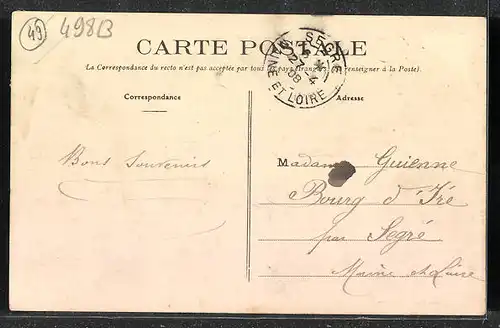 49
498B
CARTE POSTALE
(La Correspondance du recto n'est pas acceptée par tous pays étrangers renseigner à la Poste).
SEGRÉ
27 4
08
MAINE ET LOIRE
Correspondance
Adresse
Bons Souvenirs
Madame Guienne
Bourg d'Iré
par Segré
Maine et Loire